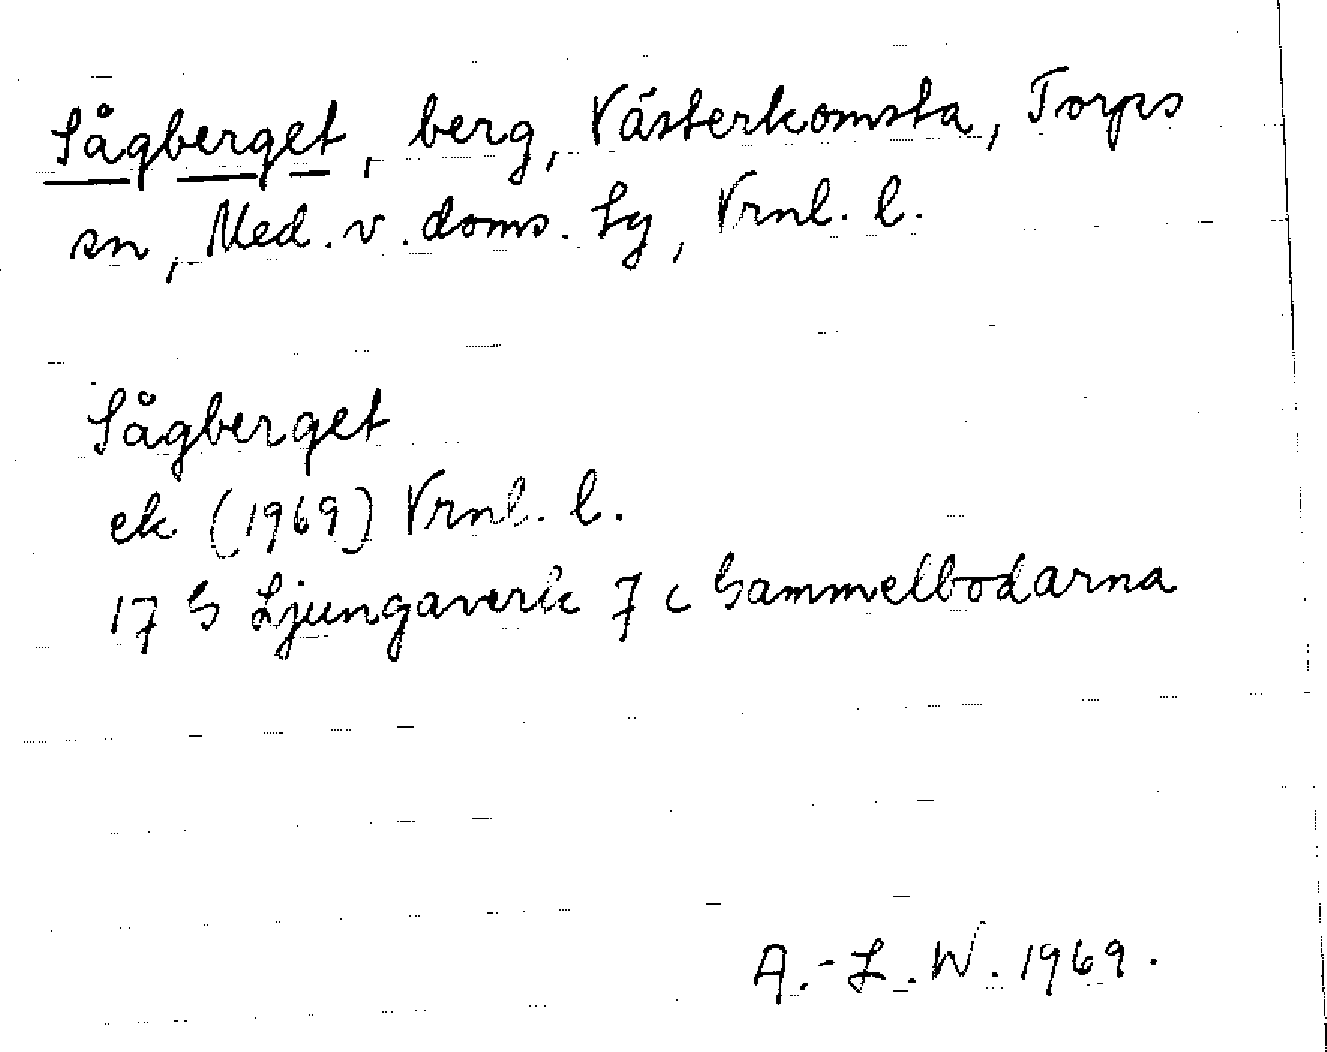 Sågberget, berg, Västerkomsta, Torps
sn, Med. v. doms. Lg, Vrnl. l.
Sågberget
ek (1969) Vrnl. l.
17 G Ljungaverk 7 c Gammelbodarna
A.-L. W. 1969.